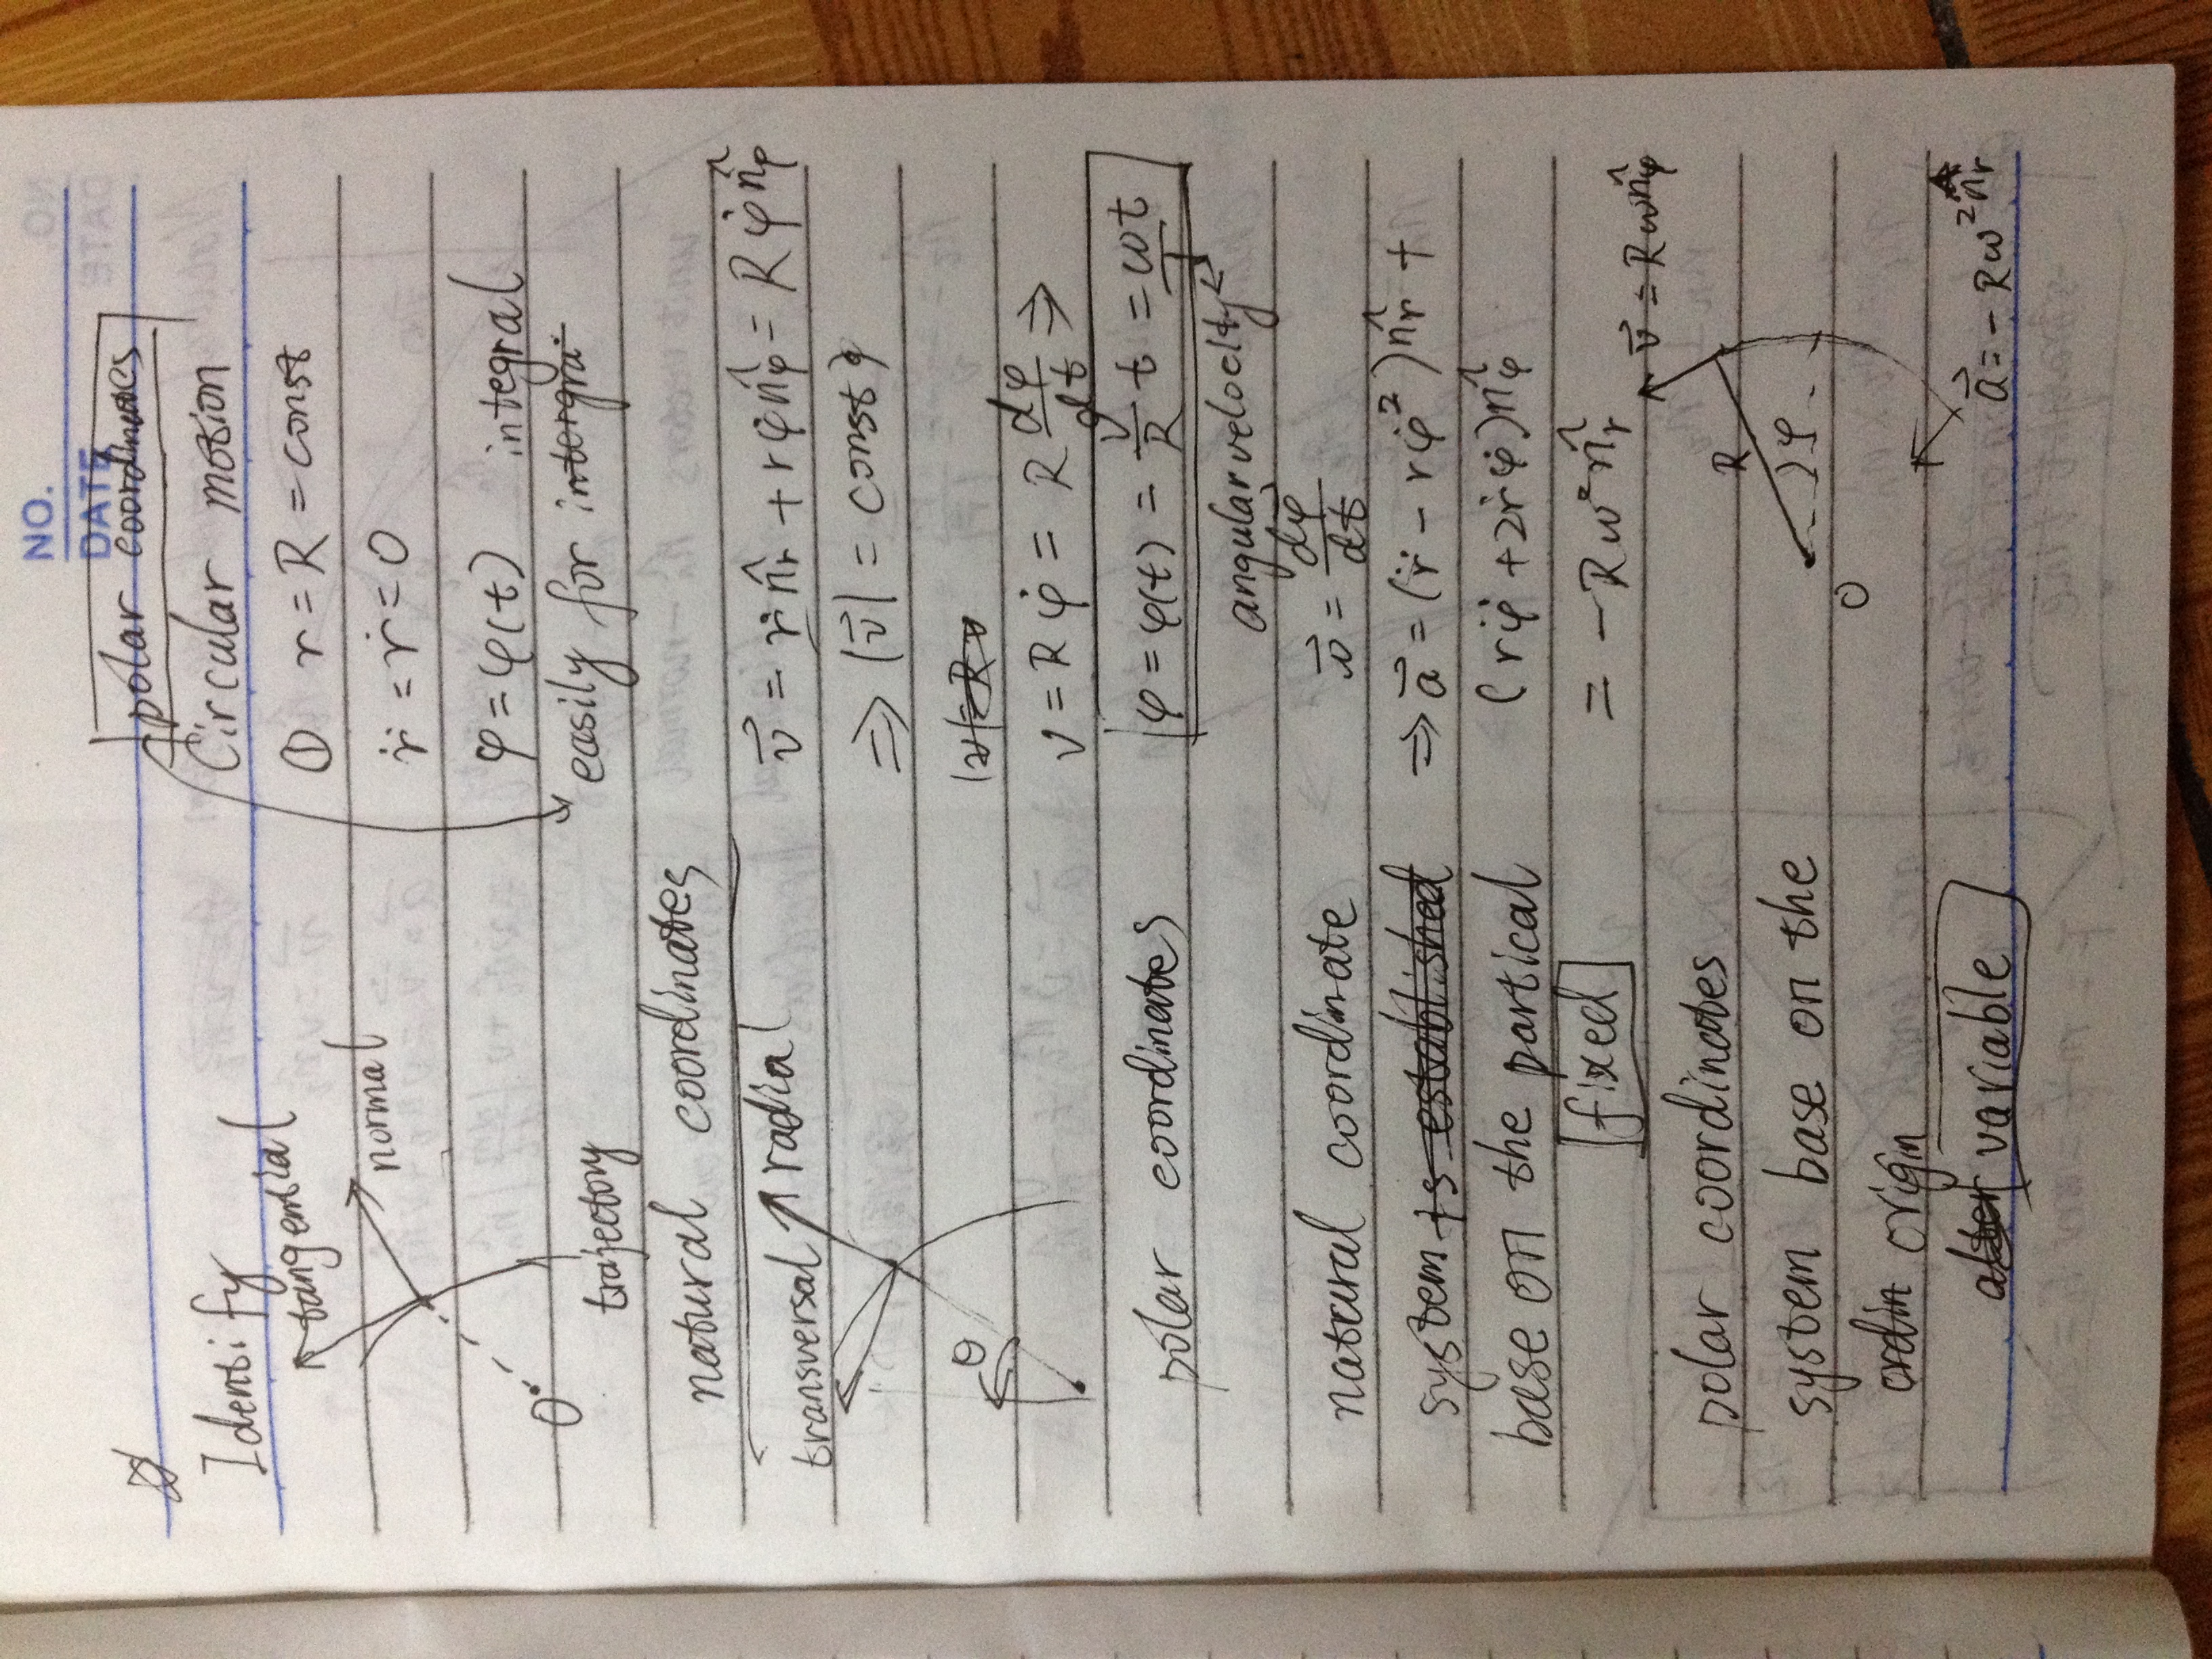 NO.
DATE
Identify
tangential
normal
O
trajectory
natural coordinates
transversal
radial
θ
polar coordinates
natural coordinate
system is established
base on the partical
fixed
polar coordinates
system base on the
ordin origin
alter variable
polar coordinates
Circular motion
① r = R = const
r̈ = ṙ = 0
φ = φ(t) integral
easily for intergra
v⃗ = ṙ n̂r + rφ̇ n̂φ = R φ̇ n̂φ
⇒ |v⃗| = const
|v| = R v
v = R φ̇ = R dφ/dt ⇒
φ = φ(t) = v/R t = ωt
angular velocity
ω⃗ = dφ⃗/dt
⇒ a⃗ = (r̈ − rφ̇²) n̂r +
(rφ̈ + 2ṙφ̇) n̂φ
= −Rω² n̂r
v⃗ = Rω n̂φ
R
φ
O
a⃗ = −Rω² n̂r